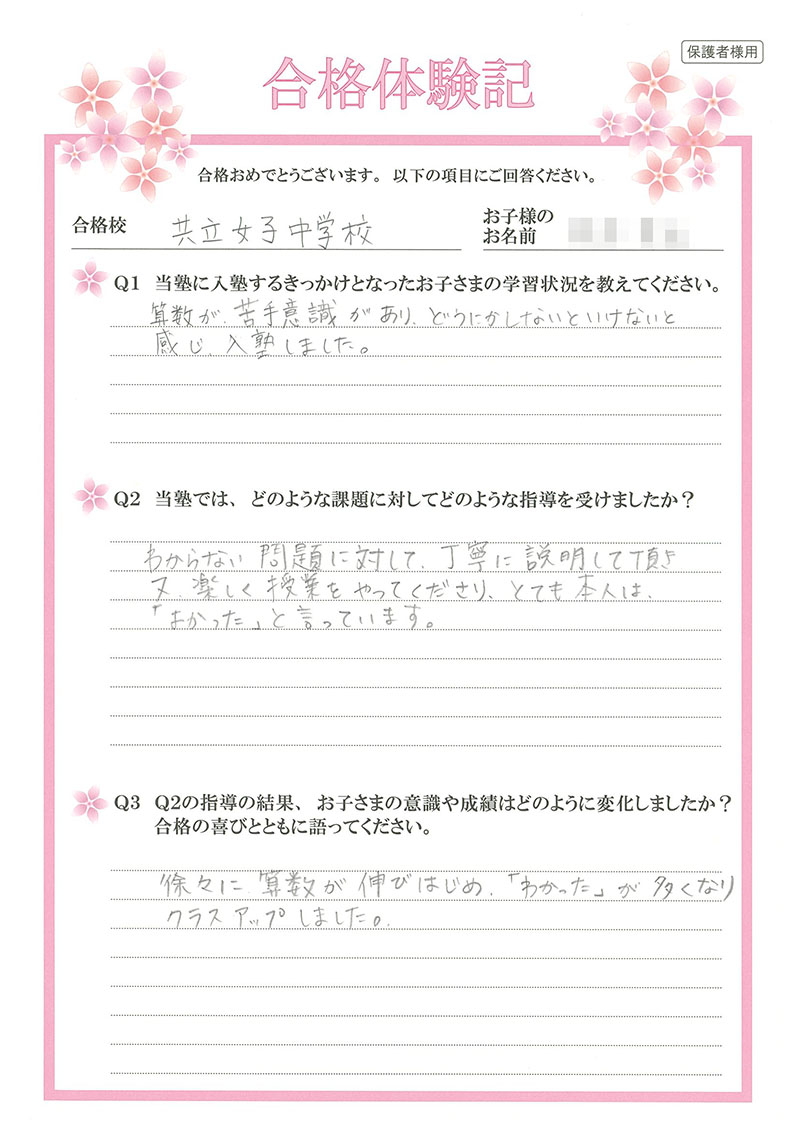 保護者様用
合格体験記
合格おめでとうございます。以下の項目にご回答ください。
合格校 共立女子中学校
お子様の
お名前
Q1 当塾に入塾するきっかけとなったお子さまの学習状況を教えてください。
算数が、苦手意識があり、どうにかしないといけないと
感じ、入塾しました。
Q2 当塾では、どのような課題に対してどのような指導を受けましたか？
わからない問題に対して、丁寧に説明して頂き
又、楽しく授業をやってくださり、とても本人は、
「よかった」と言っています。
Q3 Q2の指導の結果、お子さまの意識や成績はどのように変化しましたか？
合格の喜びとともに語ってください。
徐々に、算数が伸びはじめ、「わかった」が多くなり
クラスアップしました。